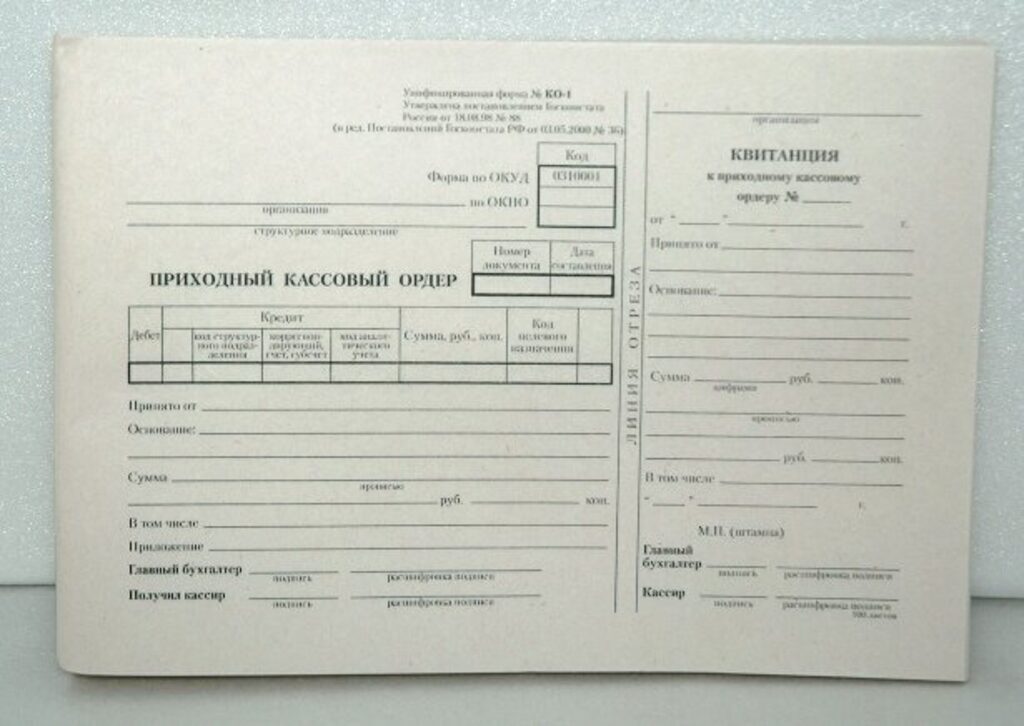 Унифицированная форма № КО-1
Утверждена постановлением Госкомстата
России от 18.08.98 № 88
(в ред. Постановлений Госкомстата РФ от 03.05.2000 № 36)
Код
Форма по ОКУД 0310001
по ОКПО
организация
структурное подразделение
Номер документа
Дата составления
ПРИХОДНЫЙ КАССОВЫЙ ОРДЕР
Дебет
Кредит
код структур-
ного подраз-
деления
корреспон-
дирующий
счет, субсчет
код анали-
тического
учета
Сумма, руб., коп.
Код
целевого
назначения
Принято от
Основание:
Сумма
прописью
руб. коп.
В том числе
Приложение
Главный бухгалтер
подпись расшифровка подписи
Получил кассир
подпись расшифровка подписи
ЛИНИЯ ОТРЕЗА
организация
КВИТАНЦИЯ
к приходному кассовому
ордеру №
от " " г.
Принято от
Основание:
Сумма руб. коп.
цифрами
прописью
руб. коп.
В том числе
" " г.
М.П. (штампа)
Главный
бухгалтер
подпись расшифровка подписи
Кассир
подпись расшифровка подписи
100 листов